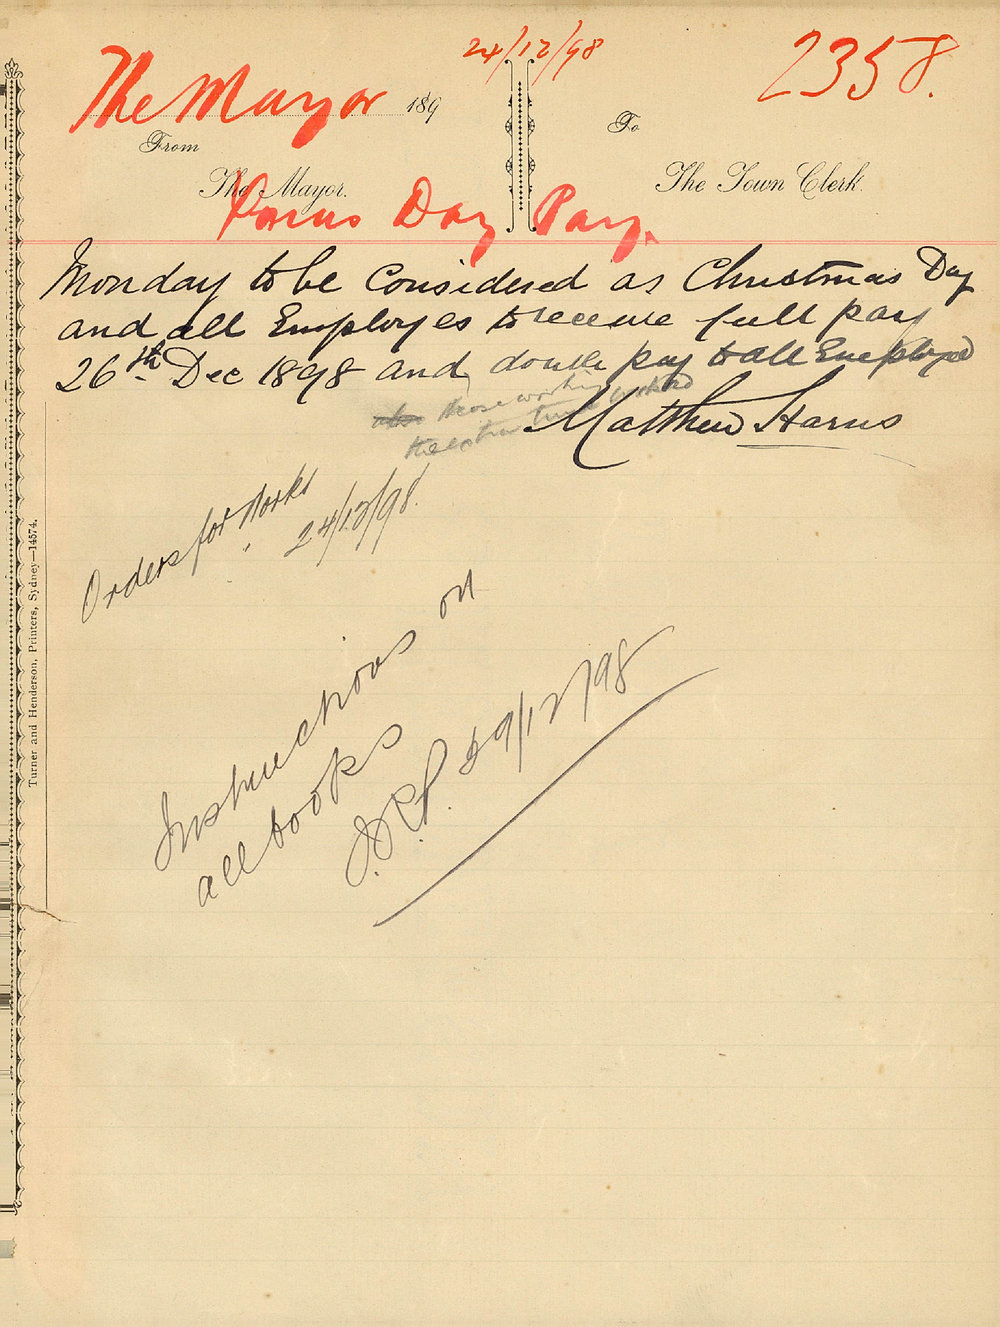 24/12/98
2358.
The Mayor 189
From
To
The Mayor.
The Town Clerk.
Xmas Day Pay.
Monday to be Considered as Christmas Day
and all Employes to receive full pay
26th Dec 1898 and double pay to all Employed
also those working
the extra time worked
Matthew Harris
Orders for Works
24/12/98.
Instructions on
all books
29/12/98
Turner and Henderson, Printers, Sydney—14574.